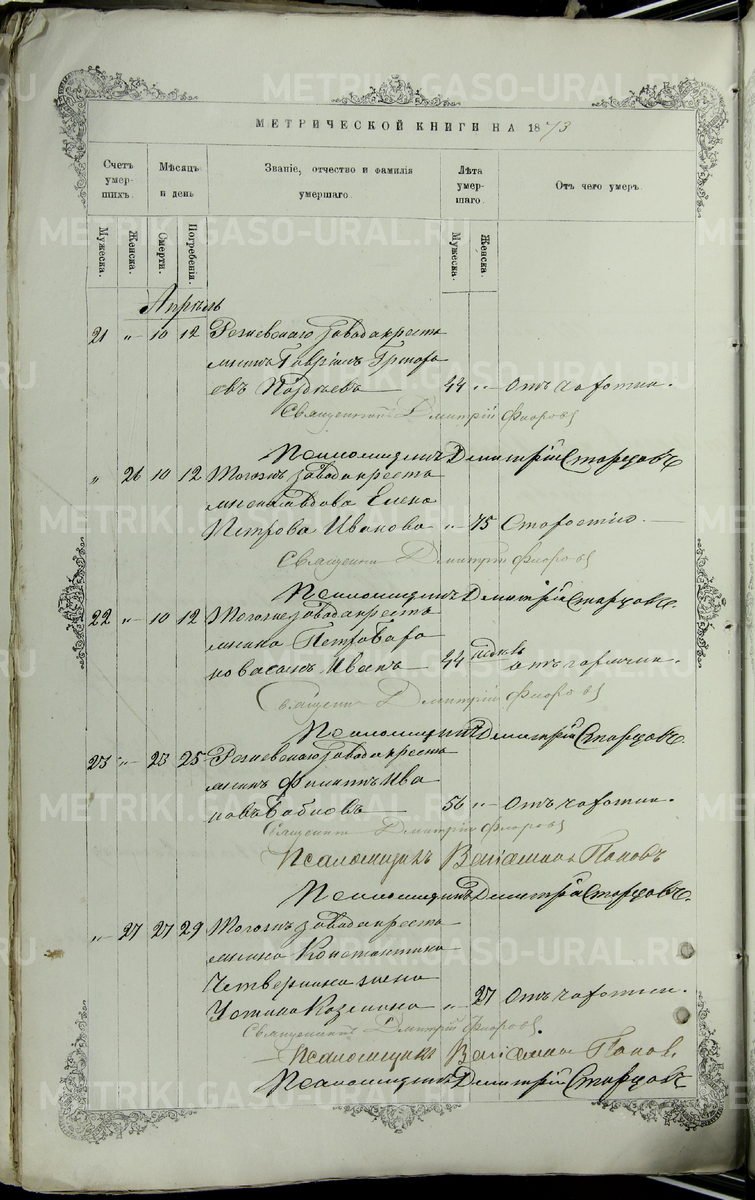 METRIKI.GASO-URAL.RU
МЕТРИЧЕСКОЙ КНИГИ НА 1873
Счетъ умер- шихъ.
Мѣсяцъ и день
Званіе, отчество и фамилія умершаго.
Лѣта умер- шаго.
Отъ чего умеръ.
Мужеска.
Женска.
Смерти.
Погребенія.
Мужеска.
Женска.
Апрѣль
21 „ 10 12 Режевскаго завода кресть
янинъ Гавріилъ Григорь
евъ 44 „ Отъ чахотки.
Священникъ Димитрій Флоровъ
Псаломщикъ Димитрій Старцовъ
„ 26 10 12 Тогожъ завода кресть
янская вдова Елена
Петрова Иванова „ 75 Старостію.
Священникъ Димитрій Флоровъ
Псаломщикъ Димитрій Старцовъ.
22 „ 10 12 Тогоже завода кресть
янина Петра
сынъ Иванъ 44 отъ горячки.
Священникъ Димитрій Флоровъ
Псаломщикъ Димитрій Старцовъ
23 „ 23 25 Режевскаго завода кресть
янинъ Филиппъ Ива
новъ Бабновъ 56 „ Отъ чахотки.
Священникъ Димитрій Флоровъ
Псаломщикъ Веніаминъ Поповъ
Псаломщикъ Димитрій Старцовъ.
„ 27 27 29 Тогожъ завода кресть
янина Константина
Четверкина жена
Устинья Козмина „ 27 Отъ чахотки.
Священникъ Димитрій Флоровъ.
Псаломщикъ Веніаминъ Поповъ.
Псаломщикъ Димитрій Старцовъ